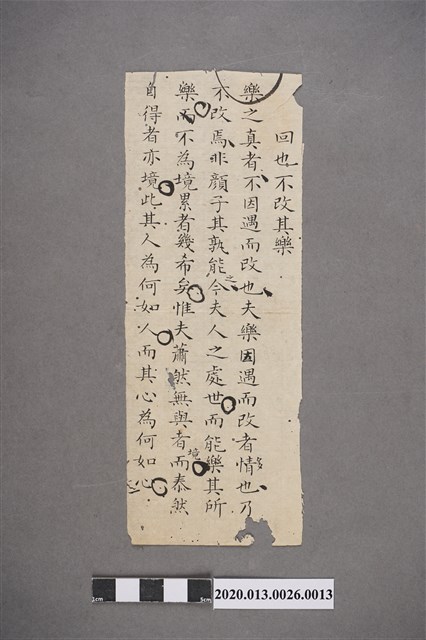 回也不改其樂
樂之真者不因遇而改也夫樂因遇而改者情也乃
不改焉非顏子其孰能之今夫人之處世而能樂其所
樂而不為境累者幾希矣惟夫蕭然無與者而泰然
境
自得者亦境此其人為何如人而其心為何如心
1cm
5cm
2020.013.0026.0013